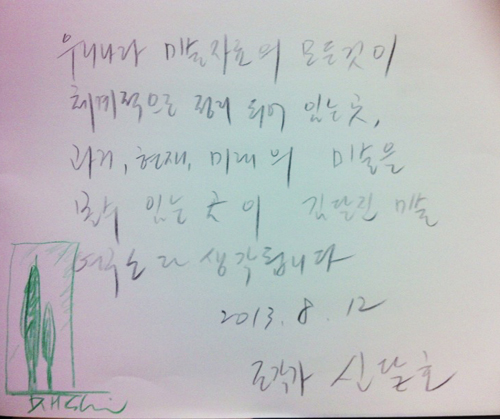 우리나라 미술자료의 모든것이
체계적으로 정리 되어 있는곳,
과거, 현재, 미래의 미술을
볼수 있는 곳이 김달진 미술
연구소 라 생각됩니다
2013. 8. 12
조각가 신달호